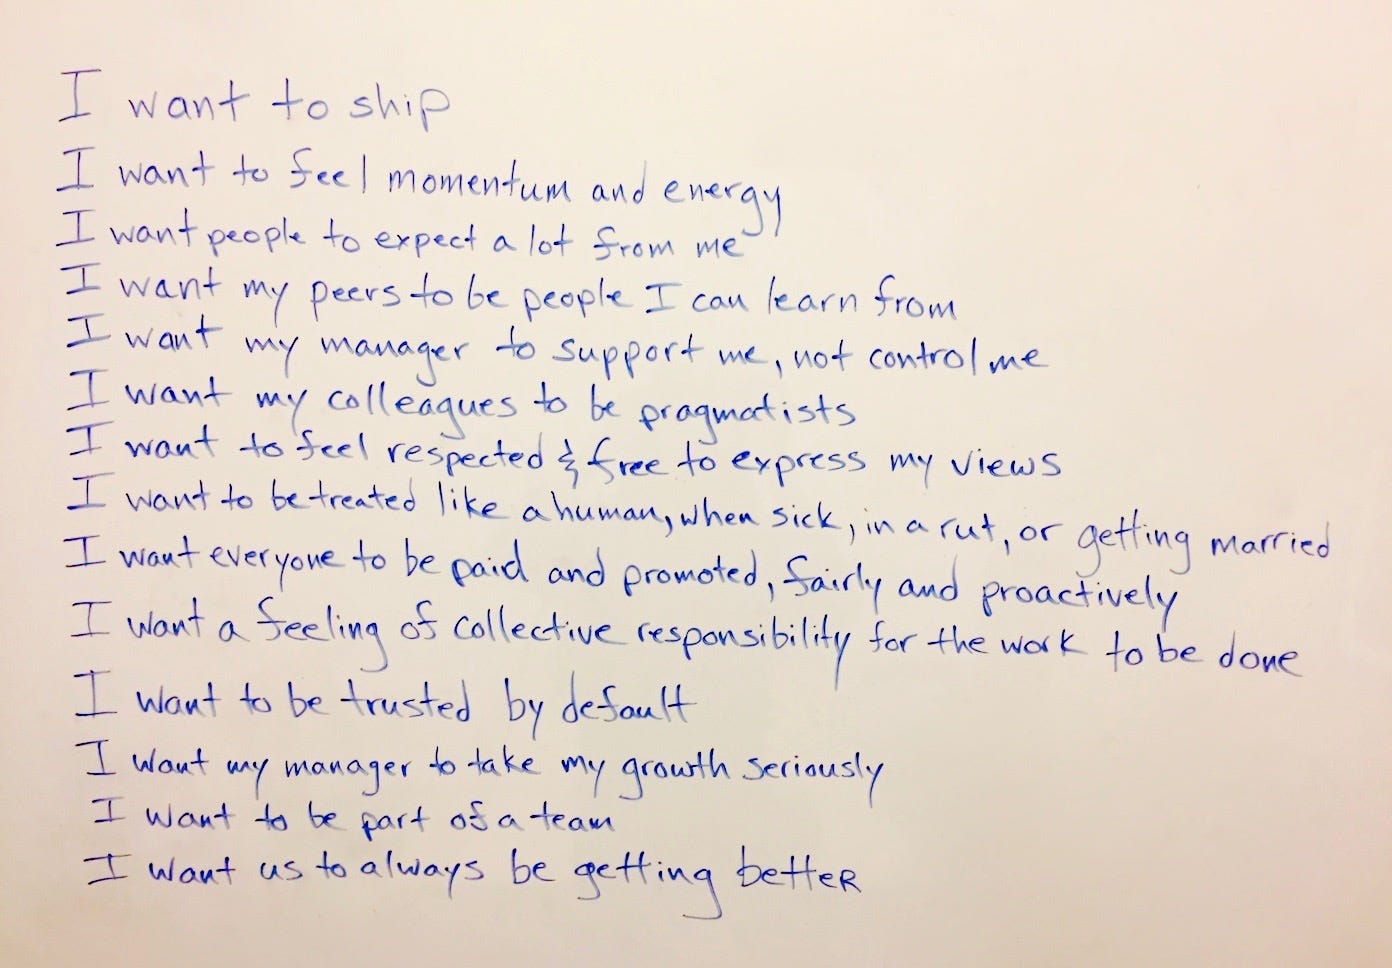 I want to ship
I want to feel momentum and energy
I want people to expect a lot from me
I want my peers to be people I can learn from
I want my manager to support me, not control me
I want my colleagues to be pragmatists
I want to feel respected & free to express my views
I want to be treated like a human, when sick, in a rut, or getting married
I want everyone to be paid and promoted, fairly and proactively
I want a feeling of collective responsibility for the work to be done
I want to be trusted by default
I want my manager to take my growth seriously
I want to be part of a team
I want us to always be getting better